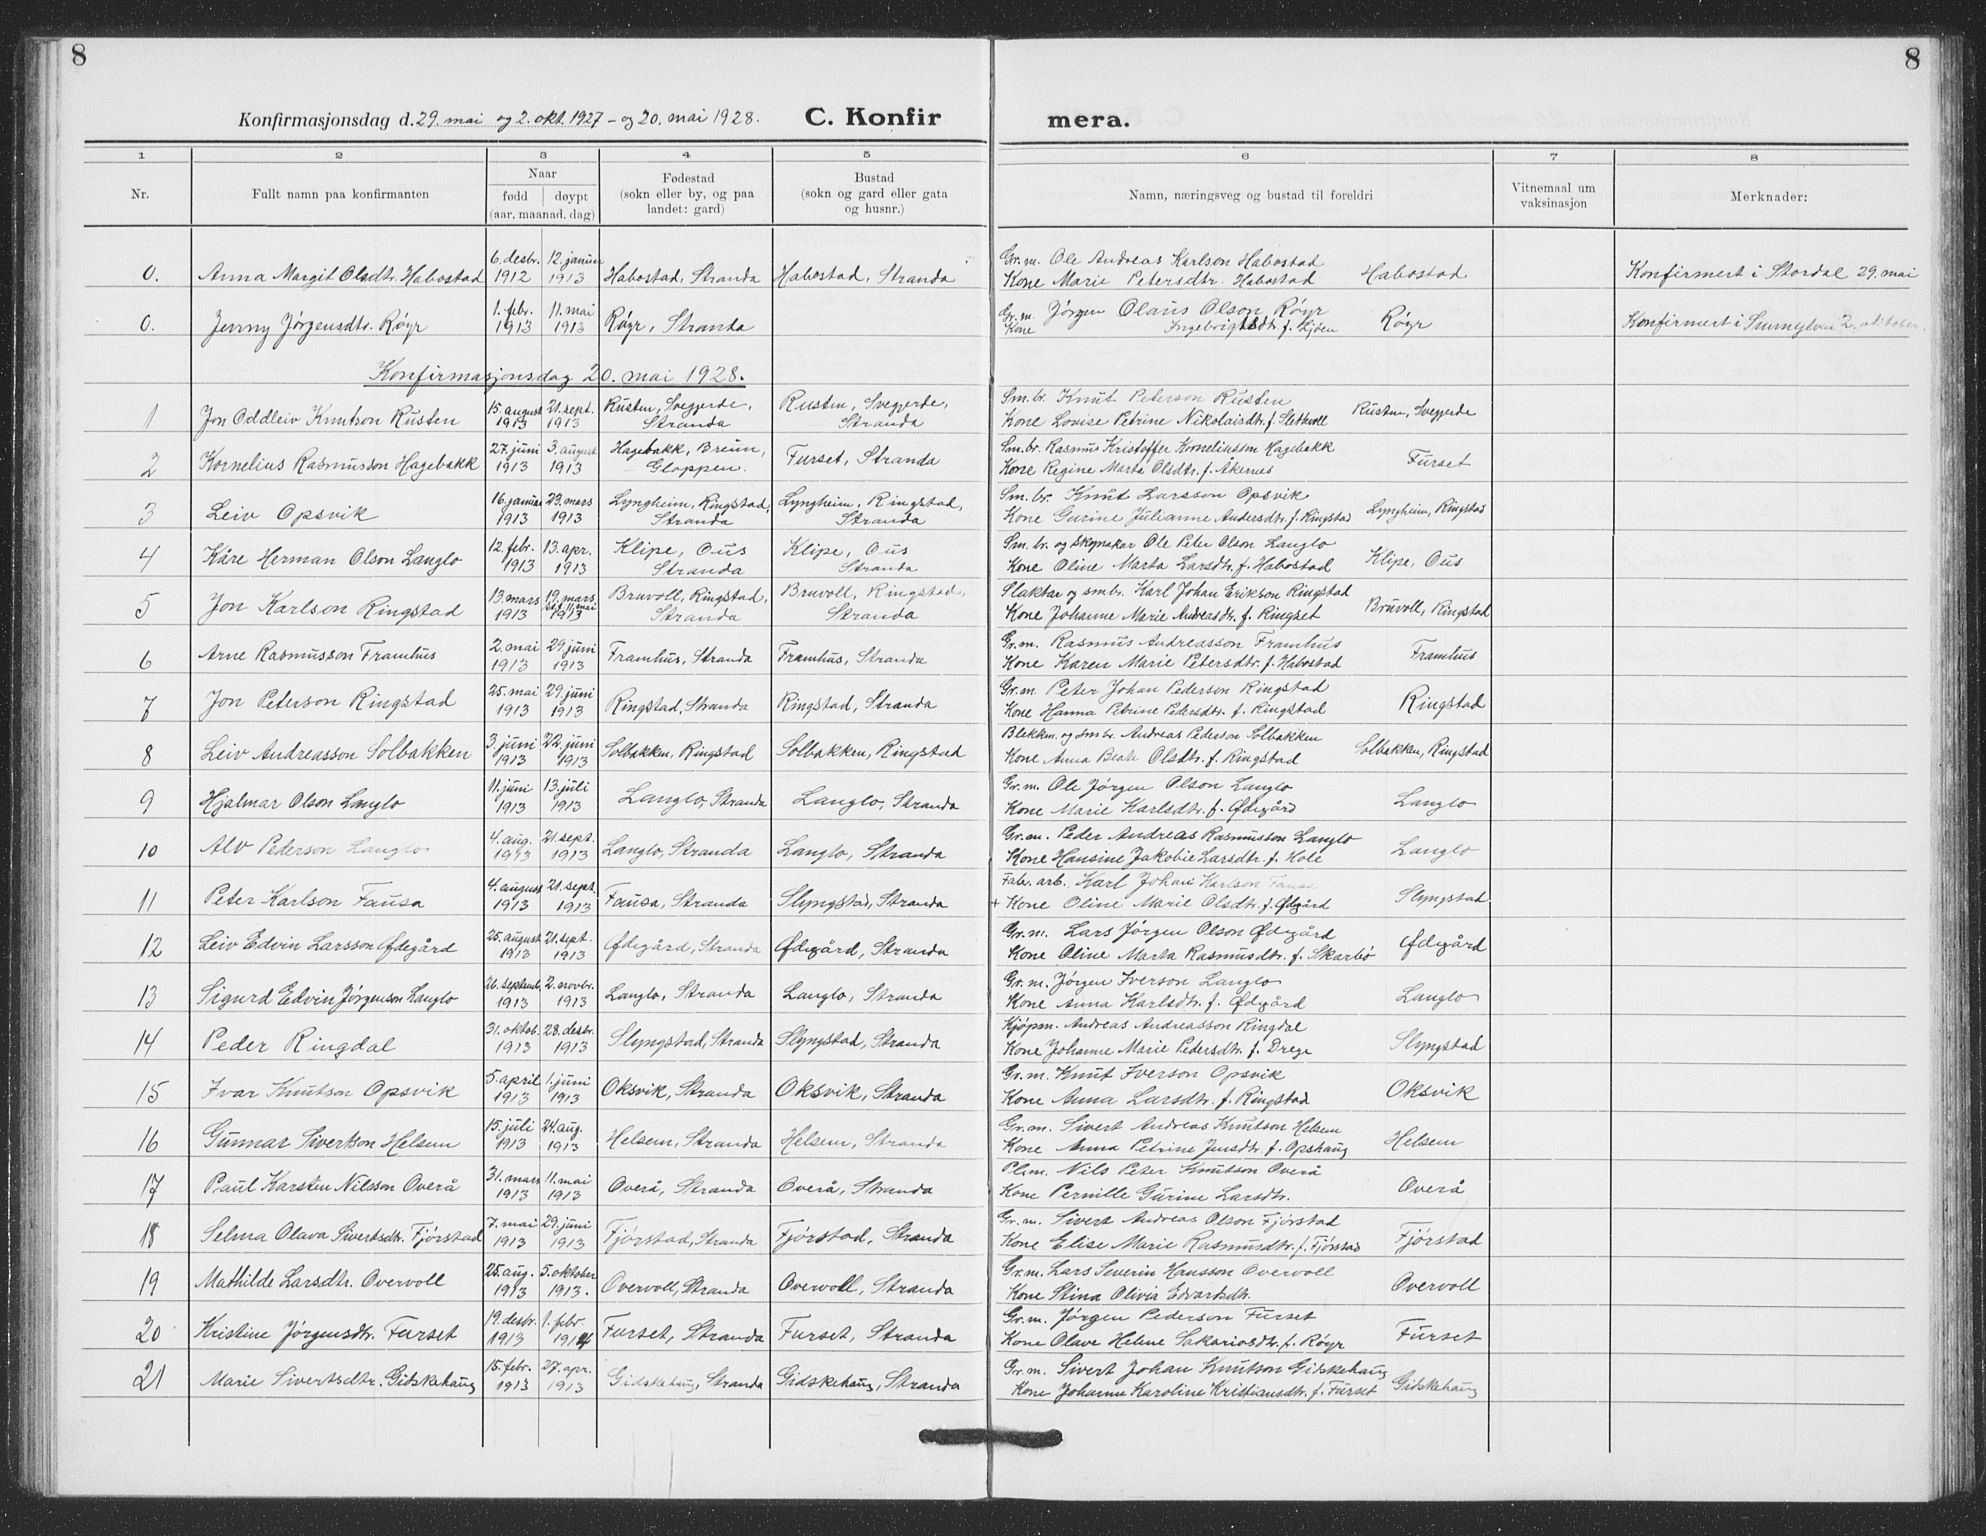 8
8
Konfirmasjonsdag d. 29. mai og 2. okt. 1927 – og 20. mai 1928.
C. Konfir
mera.
1 2 3 4 5 6 7 8
Nr. Fullt namn paa konfirmanten Naar fødd døypt (aar, maanad, dag) Fødestad (sokn eller by, og paa landet: gard) Bustad (sokn og gard eller gata og husnr.) Namn, næringsveg og bustad til foreldri Vitnemaal um vaksinasjon Merknader:
0. Anna Margit Olsdtr. Habostad 6. desbr. 1912 12. januar 1913 Habostad, Stranda Habostad, Stranda Gr.m. Ole Andreas Karlson Habostad Kone Marie Petersdtr. Habostad Habostad Konfirmert i Stordal 29. mai
0. Jenny Jørgensdtr. Røyr 1. febr. 1913 11. mai 1913 Røyr, Stranda Gr.m. Jørgen Olaus Olson Røyr Kone Ingebrigtsdtr. f. Ljøen Røyr Konfirmert i Sunnylven 2. oktober.
Konfirmasjonsdag 20. mai 1928.
1 Jon Oddleiv Knutson Rusten 15. august 1913 21. sept. 1913 Rusten, Svegjerde, Stranda Rusten, Svegjerde, Stranda Sm.br. Knut Peterson Rusten Kone Lovise Petrine Nikolaisdtr. f. Slettvoll Rusten, Svegjerde
2 Kornelius Rasmusson Hagebakk 27. juni 1913 3. august 1913 Hagebakk, Breim, Gloppen. Furset, Stranda Sm.br. Rasmus Kristoffer Korneliusson Hagebakk Kone Regine Marta Olsdtr. f. Åkernes Furset
3 Leiv Opsvik 16. januar 1913 23. mars 1913 Lyngheim, Ringstad, Stranda Lyngheim, Ringstad, Stranda Sm.br. Knut Larsson Opsvik Kone Gurine Julianne Andersdtr. f. Ringstad Lyngheim, Ringstad
4 Kåre Herman Olson Langlo 12. febr. 1913 13. apr. 1913 Klipe, Ous Stranda Klipe, Ous Stranda Sm.br. og skomakar Ole Peter Olson Langlo Kone Oline Marta Larsdtr. f. Habostad Klipe, Ous
5 Jon Karlson Ringstad 13. mars 1913 19. mars 11. mai 1913 Bruvoll, Ringstad, Stranda Bruvoll, Ringstad, Stranda Slaktar og smbr. Karl Johan Erikson Ringstad Kone Johanne Marie Andreasdtr. f. Ringset Bruvoll, Ringstad
6 Arne Rasmusson Framhus 2. mai 1913 29. juni 1913 Framhus, Stranda Framhus, Stranda Gr.m. Rasmus Andreasson Framhus Kone Karen Marie Petersdtr. f. Habostad Framhus
7 Jon Peterson Ringstad 25. mai 1913 29. juni 1913 Ringstad, Stranda Ringstad, Stranda Gr.m. Peter Johan Pederson Ringstad Kone Hanna Petrine Pedersdtr. f. Ringstad Ringstad
8 Leiv Andreasson Solbakken 3. juni 1913 22. juni 1913 Solbakken, Ringstad Solbakken, Ringstad Blekkm. og smbr. Andreas Pederson Solbakken Kone Anna Beate Olsdtr. f. Ringstad Solbakken, Ringstad
9 Hjalmar Olson Langlo 11. juni 1913 13. juli 1913 Langlo, Stranda Langlo, Stranda Gr.m. Ole Jørgen Olson Langlo Kone Marie Karlsdtr. f. Ødegård Langlo
10 Alv Pederson Langlo 4. aug. 1913 21. sept. 1913 Langlo, Stranda Langlo, Stranda Gr.m. Peder Andreas Rasmusson Langlo Kone Hansine Jakobie Larsdtr. f. Hole Langlo
11 Peter Karlson Fausa 4. august 1913 21. sept. 1913 Fausa, Stranda Slyngstad, Stranda Fabr.arb. Karl Johan Karlson Fausa + Kone Oline Marie Olsdtr. f. Ødegård Slyngstad
12 Leiv Edvin Larsson Ødegård 25. august 1913 21. sept. 1913 Ødegård, Stranda Ødegård, Stranda Gr.m. Lars Jørgen Olson Ødegård Kone Oline Marta Rasmusdtr. f. Skarbø Ødegård
13 Sigurd Edvin Jørgenson Langlo 26. septemb. 1913 2. novbr. 1913 Langlo, Stranda Langlo, Stranda Gr.m. Jørgen Iverson Langlo Kone Anna Karlsdtr. f. Ødegård Langlo
14 Peder Ringdal 31. oktob. 1913 28. desbr. 1913 Slyngstad, Stranda Slyngstad, Stranda Kjøpm. Andreas Andreasson Ringdal Kone Johanne Marie Pedersdtr. f. Drege Slyngstad
15 Ivar Knutson Opsvik 5. april 1913 1. juni 1913 Oksvik, Stranda Oksvik, Stranda Gr.m. Knut Iverson Opsvik Kone Anna Larsdtr. f. Ringstad Oksvik
16 Gunnar Sivertson Helsem 15. juli 1913 24. aug. 1913 Helsem, Stranda Helsem, Stranda Gr.m. Sivert Andreas Knutson Helsem Kone Anna Petrine Jensdtr. f. Opshaug Helsem
17 Paul Karsten Nilsson Overå 31. mars 1913 11. mai 1913 Overå, Stranda Overå, Stranda Pl.m. Nils Peter Knutson Overå Kone Pernille Gurine Larsdtr. Overå
18 Selma Olava Sivertsdtr. Fjørstad 7. mai 1913 29. juni 1913 Fjørstad, Stranda Fjørstad, Stranda Gr.m. Sivert Andreas Olson Fjørstad Kone Elise Marie Rasmusdtr. f. Fjørstad Fjørstad
19 Mathilde Larsdtr. Overvoll 25. aug. 1913 5. oktober 1913. Overvoll, Stranda Overvoll, Stranda Gr.m. Lars Severin Hansson Overvoll Kone Stina Olivia Edvardsdtr. Overvoll
20 Kristine Jørgensdtr. Furset 19. desbr. 1913 1. febr. 1914 Furset, Stranda Furset, Stranda Gr.m. Jørgen Pederson Furset Kone Olave Helene Sakariasdtr. f. Røyr Furset
21 Marie Sivertsdtr. Gidskehaug 15. febr. 1913 27. apr. 1913 Gidskehaug, Stranda Gidskehaug, Stranda Gr.m. Sivert Johan Knutson Gidskehaug Kone Johanne Karoline Kristiansdtr. f. Furset Gidskehaug